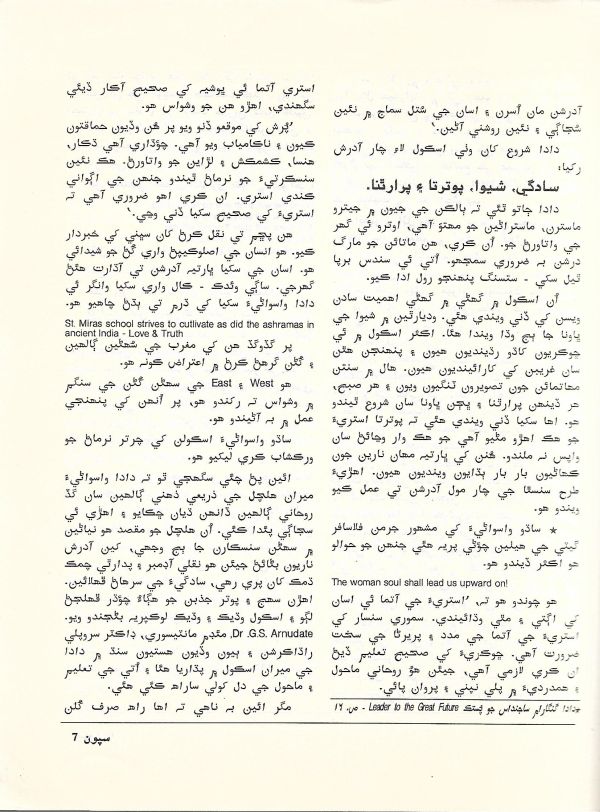 آدرشن مان اُسرن ۽ اسان جي سُتل سماج ۾ نئين
سُجاڳي ۽ نئين روشني آڻين.‘
دادا شروع کان وٺي اسڪول لاءِ چار آدرش
رکيا:
سادگي، شيوا، پوترتا ۽ پرارٿنا.
دادا ڄاتو ٿي ته ٻالڪن جي جيون ۾ جيترو
ماسترن، ماسترياڻين جو مهتوَ آهي، اوترو ئي گهر
جي واتاورڻ جو. اُن ڪري، هن ماتائن جو مارگ
درشن به ضروري سمجهيو. اُتي ئي سندس برپا
ٿيل سکي - ستسنگ پنهنجو رول ادا ڪيو.
اُن اسڪول ۾ گهڻي ۾ گهڻي اهميت سادن
ويسن کي ڏني ويندي هئي. وديارٿين ۾ شيوا جي
ڀاونا جا ٻج وڌا ويندا هئا. اڪثر اسڪول ۾ ئي
ڇوڪريون کاڌو رڌينديون هيون ۽ پنهنجن هٿن
سان غريبن کي کارائينديون هيون. هال ۾ سنتن
مهاتمائن جون تصويرون ٽنگيون ويون ۽ هر صبح،
هر ڏينهن پرارٿنا ۽ ڀڄن ڀاونا سان شروع ٿيندو
هو. اها سکيا ڏني ويندي هئي ته پوترتا استريءَ
جو هڪ اهڙو مڻيو آهي جو هڪ وار وڃائڻ سان
واپس نه ملندو. هُنن کي ڀارتيه مهان نارين جون
ڪهاڻيون بار بار ٻڌايون وينديون هيون. اهڙيءَ
طرح سنستا جي چار مول آدرشن تي عمل ڪيو
ويندو هو.
★ ساڌو واسواڻيءَ کي مشهور جرمن فلاسافر
گيٽي جي هيٺين چوڻي پريه هئي جنهن جو حوالو
هو اڪثر ڏيندو هو.
The woman soul shall lead us upward on!
هو چوندو هو ته، ’استريءَ جي آتما ئي اسان
کي اڳتي ۽ مٿي وڌائيندي. سموري سنسار کي
استريءَ جي آتما جي مدد ۽ پريرڻا جي سخت
ضرورت آهي. ڇوڪريءَ کي صحيح تعليم ڏيڻ
اُن ڪري لازمي آهي، جيئن هوُ روحاني ماحول
۽ همدرديءَ ۾ پلي نپني ۽ پروان پائي.
★دادا گنگارام ساجنداس جو پستڪ Leader to the Great Future - ص. ١٦
استري آتما ئي ڀوشيه کي صحيح آڪار ڏيئي
سگهندي، اهڙو هن جو وشواس هو.
’پُرش کي موقعو ڏنو ويو پر هُن وڏيون حماقتون
ڪيون ۽ ناڪامياب ويو آهي. چوڌاري آهي ڏڪار،
هنسا، ڪشمڪش ۽ لڙاين جو واتاورڻ. هڪ نئين
سنسڪرتيءَ جو نرماڻ ٿيندو جنهن جي اڳواڻي
ڪندي استري. ان ڪري اهو ضروري آهي ته
استريءَ کي صحيح سکيا ڏني وڃي.‘
هن پڇم تي نقل ڪرڻ کان سڀني کي خبردار
ڪيو. هو انسان جي اصلوڪيپڻ واري گُڻ جو شيدائي
هو. اسان جي سکيا ڀارتيه آدرشن تي آڌارت هئڻ
گهرجي. ساڳي وئدڪ - ڪال واري سکيا وانگر ئي
دادا واسواڻيءَ سکيا کي ڌرم تي ٻڌڻ چاهيو هو.
St. Miras school strives to cutlivate as did the ashramas in
ancient India - Love & Truth
پر گڏوگڏ هن کي مغرب جي سُهڻين ڳالهين
۽ گُڻن گرهڻ ڪرڻ ۾ اعتراض ڪونه هو.
هو West ۽ East جي سهڻن گُڻن جي سنگم
۾ وشواس ته رکندو هو، پر اُنهن کي پنهنجي
عمل ۾ به آڻيندو هو.
ساڌو واسواڻيءَ اسڪولن کي چرتر نرماڻ جو
ورڪشاپ ڪري ليکيو هو.
ائين پڻ چئي سگهجي ٿو ته دادا واسواڻيءَ
ميران هلچل جي ذريعي ذهني ڳالهين سان گڏ
روحاني ڳالهين ڏانهن ڌيان ڇڪايو ۽ اهڙي ئي
سجاڳي پئدا ڪئي. اُن هلچل جو مقصد هو نياڻين
۾ سهڻن سنسڪارن جا ٻج وجهي، کين آدرش
ناريون بڻائڻ جيئن هو نقلي آڊمبر ۽ پدارٿي چمڪ
ڌمڪ کان پري رهي، سادگيءَ جي سرهاڻ ڦهلائين.
اهڙن سهج ۽ پوتر جذبن جو هڳاءُ چؤڌر ڦهلجڻ
لڳو ۽ اسڪول وڌيڪ ۽ وڌيڪ لوڪپريه بڻجندو ويو.
Dr .G.S. Arnudate، مئڊم مانٽيسوري، ڊاڪٽر سروپلي
راڌاڪرشن ۽ ٻيون وڏيون هستيون سنڌ ۾ دادا
جي ميران اسڪول ۾ پڌاريا هئا ۽ اُتي جي تعليم
۽ ماحول جي دل کولي ساراهه ڪئي هئي.
مگر ائين به ناهي ته اها راهه صرف گلن
سپون 7